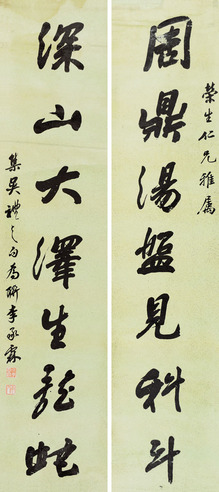 榮生仁兄雅屬
周鼎湯盤見科斗
深山大澤生龍蛇
集吳禮之句為研李承霖